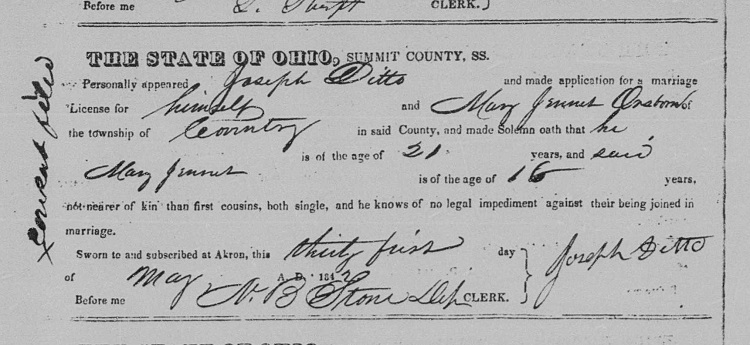 Before me
CLERK.
THE STATE OF OHIO, SUMMIT COUNTY, SS.
Personally appeared Joseph Ditto and made application for a marriage
License for himself and Mary Jennet Orsborn of
the township of Coventry in said County, and made Solemn oath that he
is of the age of 21 years, and said
Mary Jennet is of the age of 16 years,
not nearer of kin than first cousins, both single, and he knows of no legal impediment against their being joined in
marriage.
Sworn to and subscribed at Akron, this thirty first day
of May A. D. 184
Before me N. B. Stone Dep CLERK.
Joseph Ditto
Consent filed